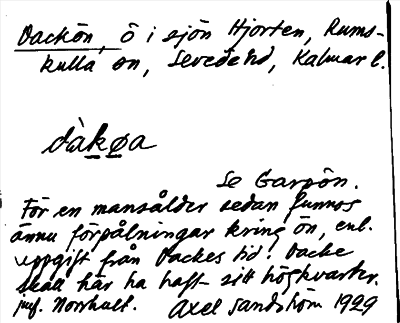 Dackön, ö i sjön Hjorten, Rums-
kulla sn, Sevede hd, Kalmar l.
dàkøa
Se Garpön.
För en mansålder sedan funnos
ännu förpålningar kring ön, enl.
uppgift från Dackes tid! Dacke
skall här ha haft sitt högkvarter.
jmf. Norrhult. Axel Sandström 1929